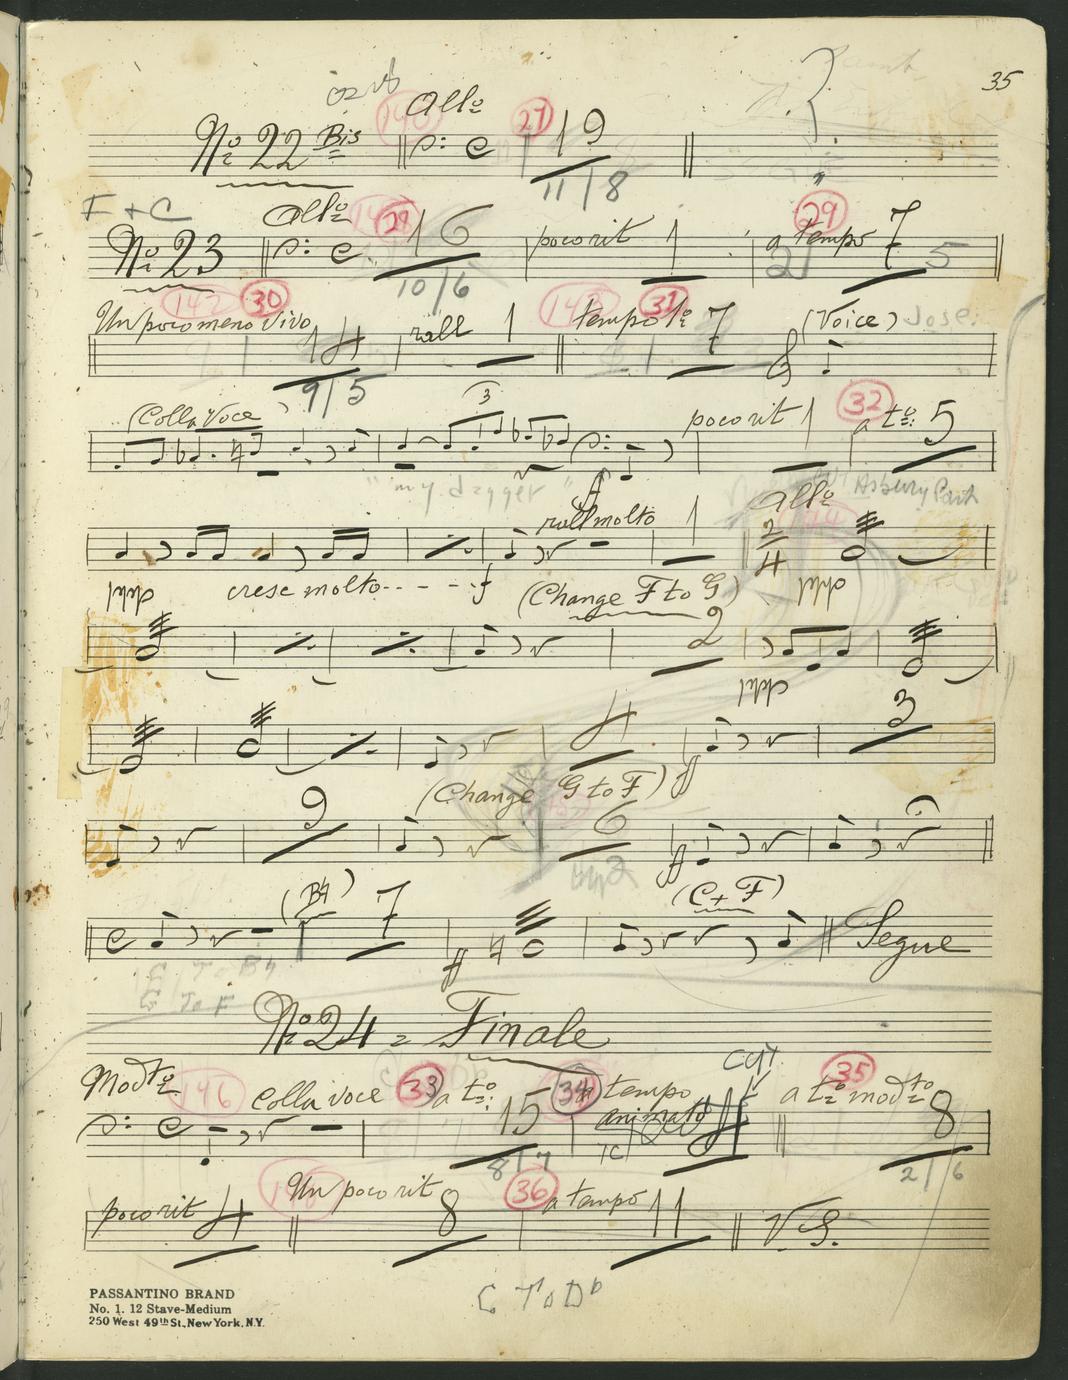 35
Allo
No 22 Bis 140 27 19
11 | 8
F + C
Allo 28 29
No 23 16 poco rit 1 a tempo 7
2 5
10 | 6
142 30 143 31
Un poco meno vivo 14 rall 1 tempo 1o 7 (Voice) Jose
9 | 5
(Colla Voce) 3 poco rit 1 32 a to: 5
"my dagger" f
Asbury Park
Allo
rall molto 1 144 2/4
cresc molto - - - - f (Change F to G)
2
4 3
(Change G to F) ff
9 6
ff
(B♮) 7 (C + F)
ff Segue
C To B♮
G To F
No 24 = Finale
Cut
Modto 146 colla voce 33 a to: 15 34 tempo animato 4 35 a to modto 8
8 | 7 2 | 6
poco rit 4 Un poco rit 8 36 a tempo 11 V.S.
C To D♭
PASSANTINO BRAND
No. 1. 12 Stave-Medium
250 West 49th St., New York, N.Y.